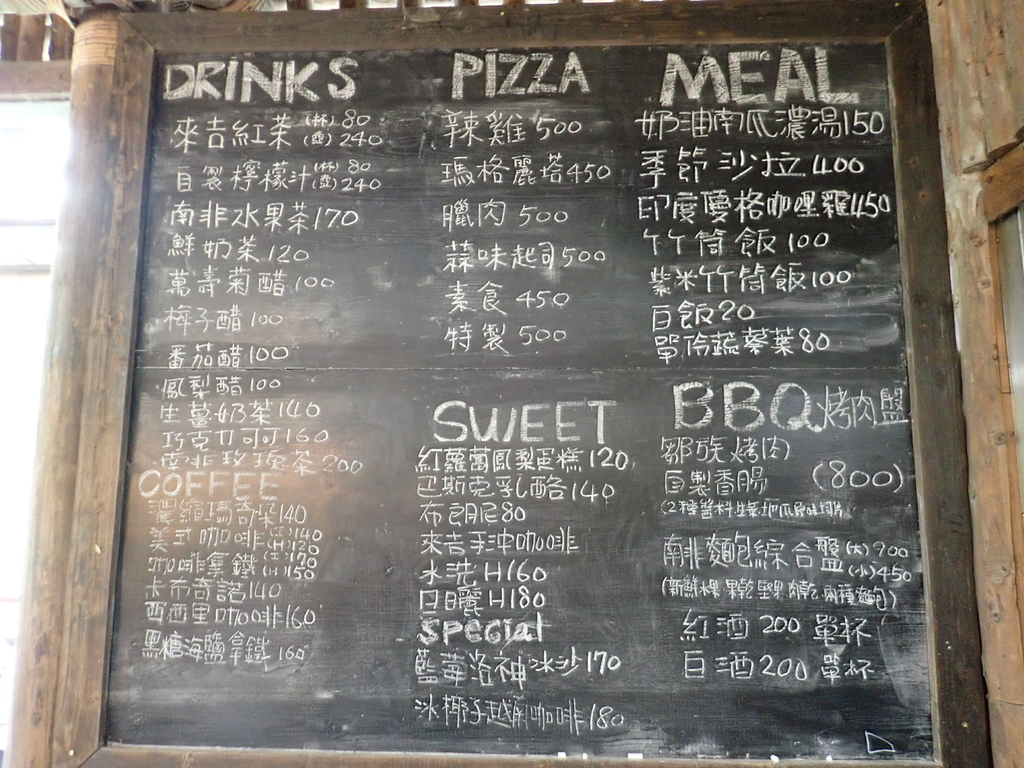 DRINKS
來吉紅茶(杯)80 (壺)240
自製檸檬汁(杯)80 (壺)240
南非水果茶170
鮮奶茶120
萬壽菊醋100
梅子醋100
番茄醋100
鳳梨醋100
生薑奶茶140
巧克力可可160
南非玫瑰茶200
COFFEE
濃縮瑪奇朵140
美式咖啡(冰)140 (H)120
咖啡拿鐵 (H)150
卡布奇諾140
西西里咖啡160
黑糖海鹽拿鐵160
PIZZA
辣雞500
瑪格麗塔450
臘肉500
蒜味起司500
素食450
特製500
SWEET
紅蘿蔔鳳梨蛋糕120
巴斯克乳酪140
布朗尼80
來吉手沖咖啡
水洗H160
日曬H180
SPECial
藍莓洛神冰沙170
冰椰子越南咖啡180
MEAL
奶油南瓜濃湯150
季節沙拉400
印度優格咖哩雞450
竹筒飯100
紫米竹筒飯100
白飯20
單份蔬菜葉80
BBQ烤肉盤
鄒族烤肉
自製香腸 (800)
(2種醬料生菜地瓜原味
南非麵包綜合盤(大)900 (小)450
(新鮮水果 果乾 堅果 肉乾 兩種麵包)
紅酒200單杯
白酒200單杯